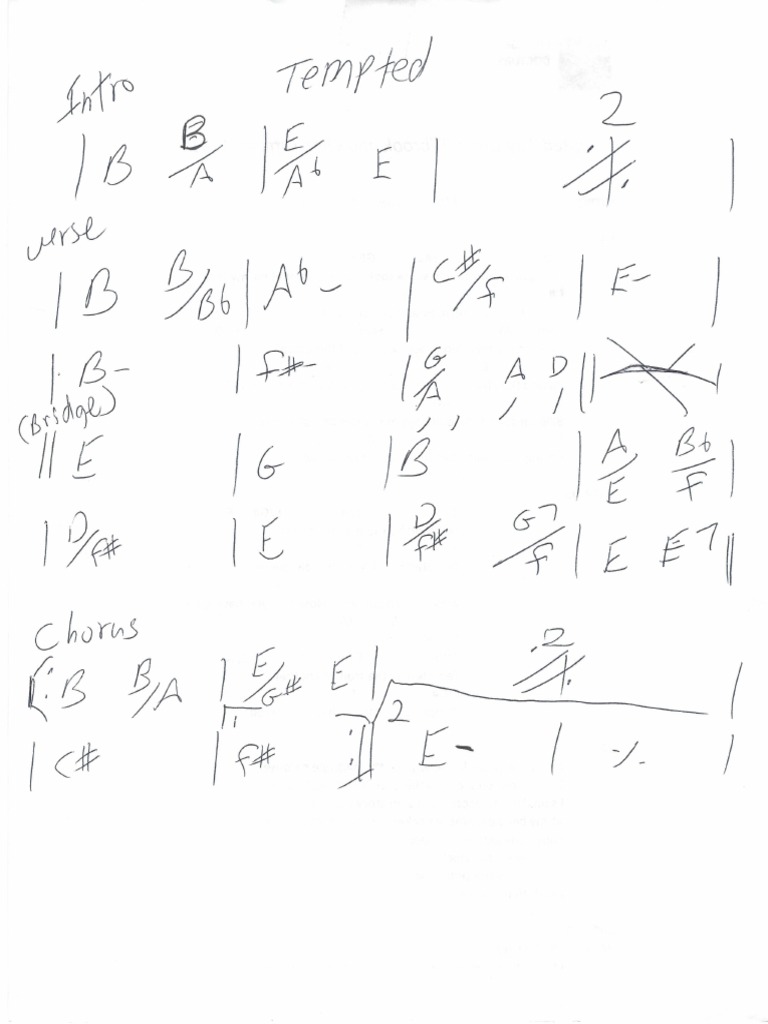 Tempted
Intro
2
| B B/A | E/Ab E | 𝄎 |
verse
| B B/Bb | Ab- | C#/F | E- |
| B- | F#- | G/A A D ||
(Bridge)
|| E | G | B | A/E Bb/F |
| D/F# | E | D/F# G7/F | E E7 ||
Chorus
2
|: B B/A | E/G# E | 𝄎 |
1. 2
| C# | F# :|| E- | 𝄎 |